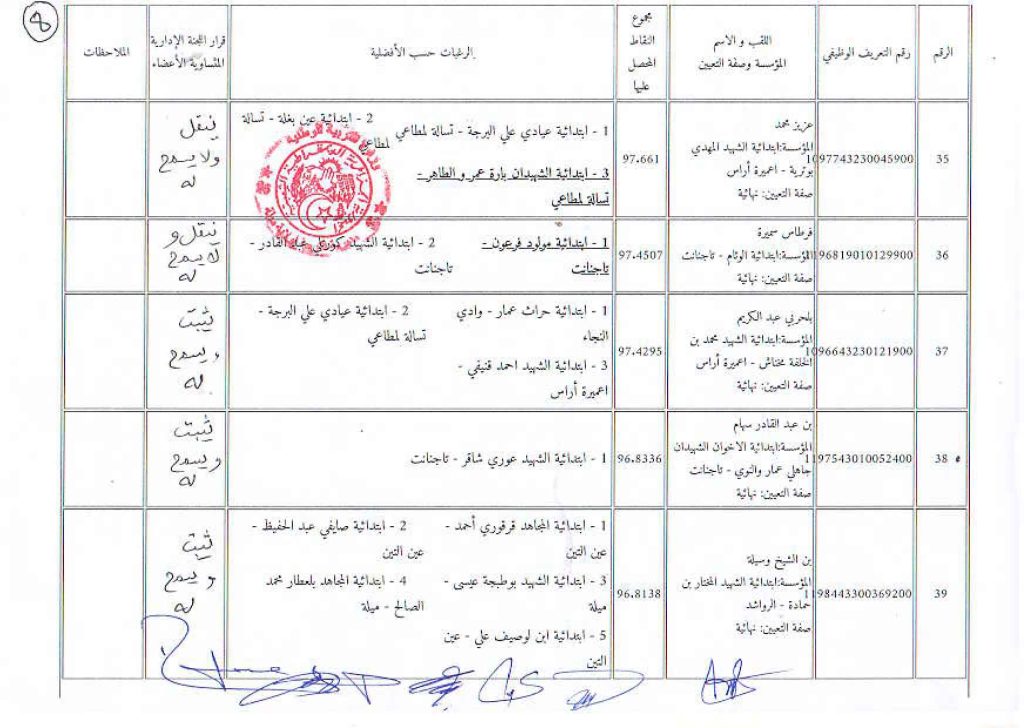 8
الرقم
رقم التعريف الوظيفي
اللقب و الاسم
المؤسسة وصفة التعيين
مجموع
النقاط
المحصل
عليها
الرغبات حسب الأفضلية
قرار اللجنة الإدارية
المتساوية الأعضاء
الملاحظات
35
1097743230045900
عزيز محمد
المؤسسة:ابتدائية الشهيد المهدي
بوترية - اعميرة أراس
صفة التعيين: نهائية
97.661
1 - ابتدائية عيادي علي البرجة - تسالة لمطاعي
2 - ابتدائية عين بغلة - تسالة
لمطاعي
3 - ابتدائية الشهيدان بارة عمر و الطاهر -
تسالة لمطاعي
ينقل
ولا يسمح
له
36
1196819010129900
قرطاس سميرة
المؤسسة:ابتدائية الوئام - تاجنانت
صفة التعيين: نهائية
97.4507
1 - ابتدائية مولود فرعون -
تاجنانت
2 - ابتدائية الشهيد كورغلي عبد القادر -
تاجنانت
ينقل و
لا يسمح
له
37
1096643230121900
بلحربي عبد الكريم
المؤسسة:ابتدائية الشهيد محمد بن
الخلفة مخناش - اعميرة أراس
صفة التعيين: نهائية
97.4295
1 - ابتدائية حراث عمار - وادي
النجاء
2 - ابتدائية عيادي علي البرجة -
تسالة لمطاعي
3 - ابتدائية الشهيد احمد قنيفي -
اعميرة أراس
يثبت
ويسمح
له
38
1197543010052400
بن عبد القادر سهام
المؤسسة:ابتدائية الاخوان الشهيدان
جاهلي عمار والنوي - تاجنانت
صفة التعيين: نهائية
96.8336
1 - ابتدائية الشهيد عوري شاقر - تاجنانت
يثبت
ويسمح
له
39
1198443300369200
بن الشيخ وسيلة
المؤسسة:ابتدائية الشهيد المختار بن
حمادة - الرواشد
صفة التعيين: نهائية
96.8138
1 - ابتدائية المجاهد قرقوري أحمد -
عين التين
2 - ابتدائية صايفي عبد الحفيظ -
عين التين
3 - ابتدائية الشهيد بوطبجة عيسى -
ميلة
4 - ابتدائية المجاهد بلعطار محمد
الصالح - ميلة
5 - ابتدائية ابن لوصيف علي - عين
التين
يثبت
ويسمح
له